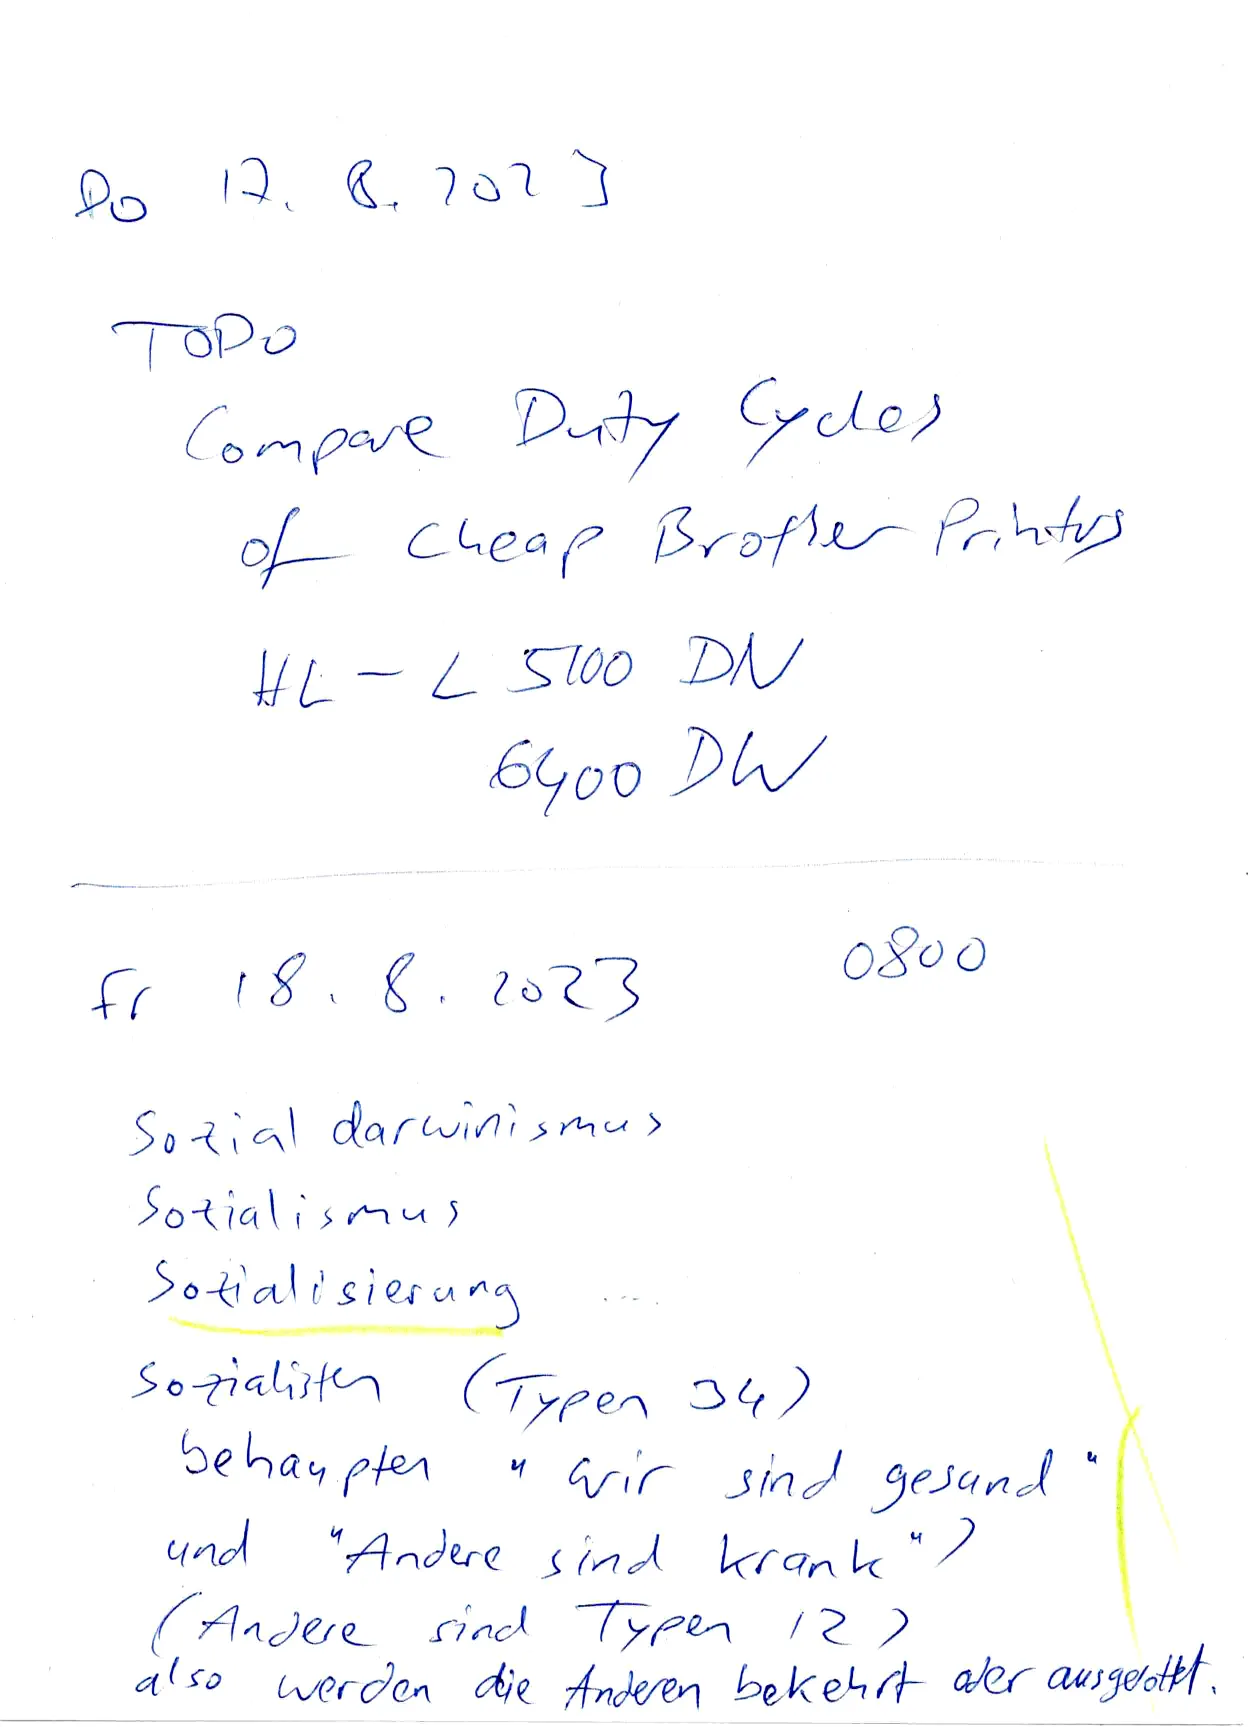 Do 17. 8. 2023
TODO
Compare Duty Cycles
of Cheap Brother Printers
HL-L 5100 DN
6400 DW
Fr 18. 8. 2023 0800
Sozialdarwinismus
Sozialismus
Sozialisierung ....
Sozialisten (Typen 34)
behaupten "wir sind gesund"
und "Andere sind krank")
(Andere sind Typen 12)
also werden die Anderen bekehrt oder ausgerottet.